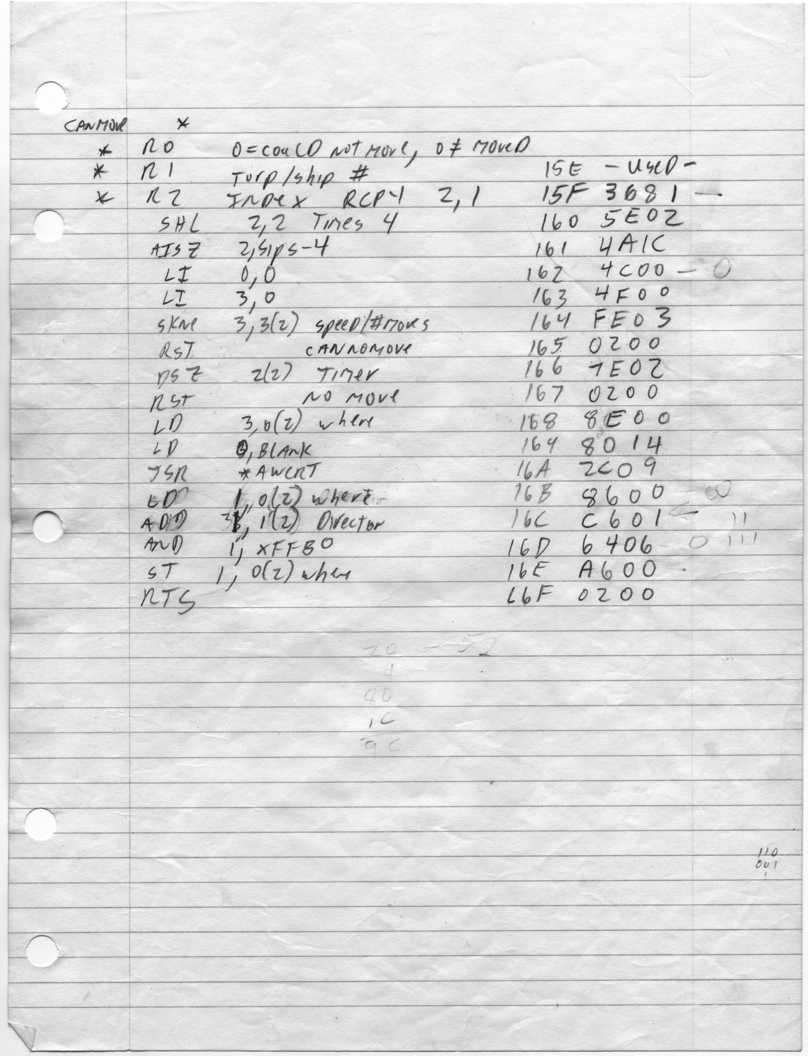 CANMOVE *
* R0 0=could not move, 0≠ moved
* R1 Torp/ship # 15E - Used-
* R2 Index RCPY 2,1 15F 3681 -
SHL 2,2 Times 4 160 5E02
AISZ 2,Sips-4 161 4A1C
LI 0,0 162 4C00 - 0
LI 3,0 163 4F00
SKNE 3,3(2) speed/#moves 164 FE03
RST CANNOMOVE 165 0200
DSZ 2(2) Timer 166 7E02
RST NO MOVE 167 0200
LD 3,0(2) where 168 8E00
LD 0,BLANK 169 8014
JSR *AWCRT 16A 2C09
LD 1,0(2) where 16B 8600 00
ADD 1,1(2) Director 16C C601 - 11
AND 1,XFFB0 16D 6406 - 0 111
ST 1,0(2) where 16E A600 -
RTS 16F 0200
20 - 52
1
80
1C
9C
110
001
1